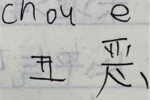 chou e
丑 恶